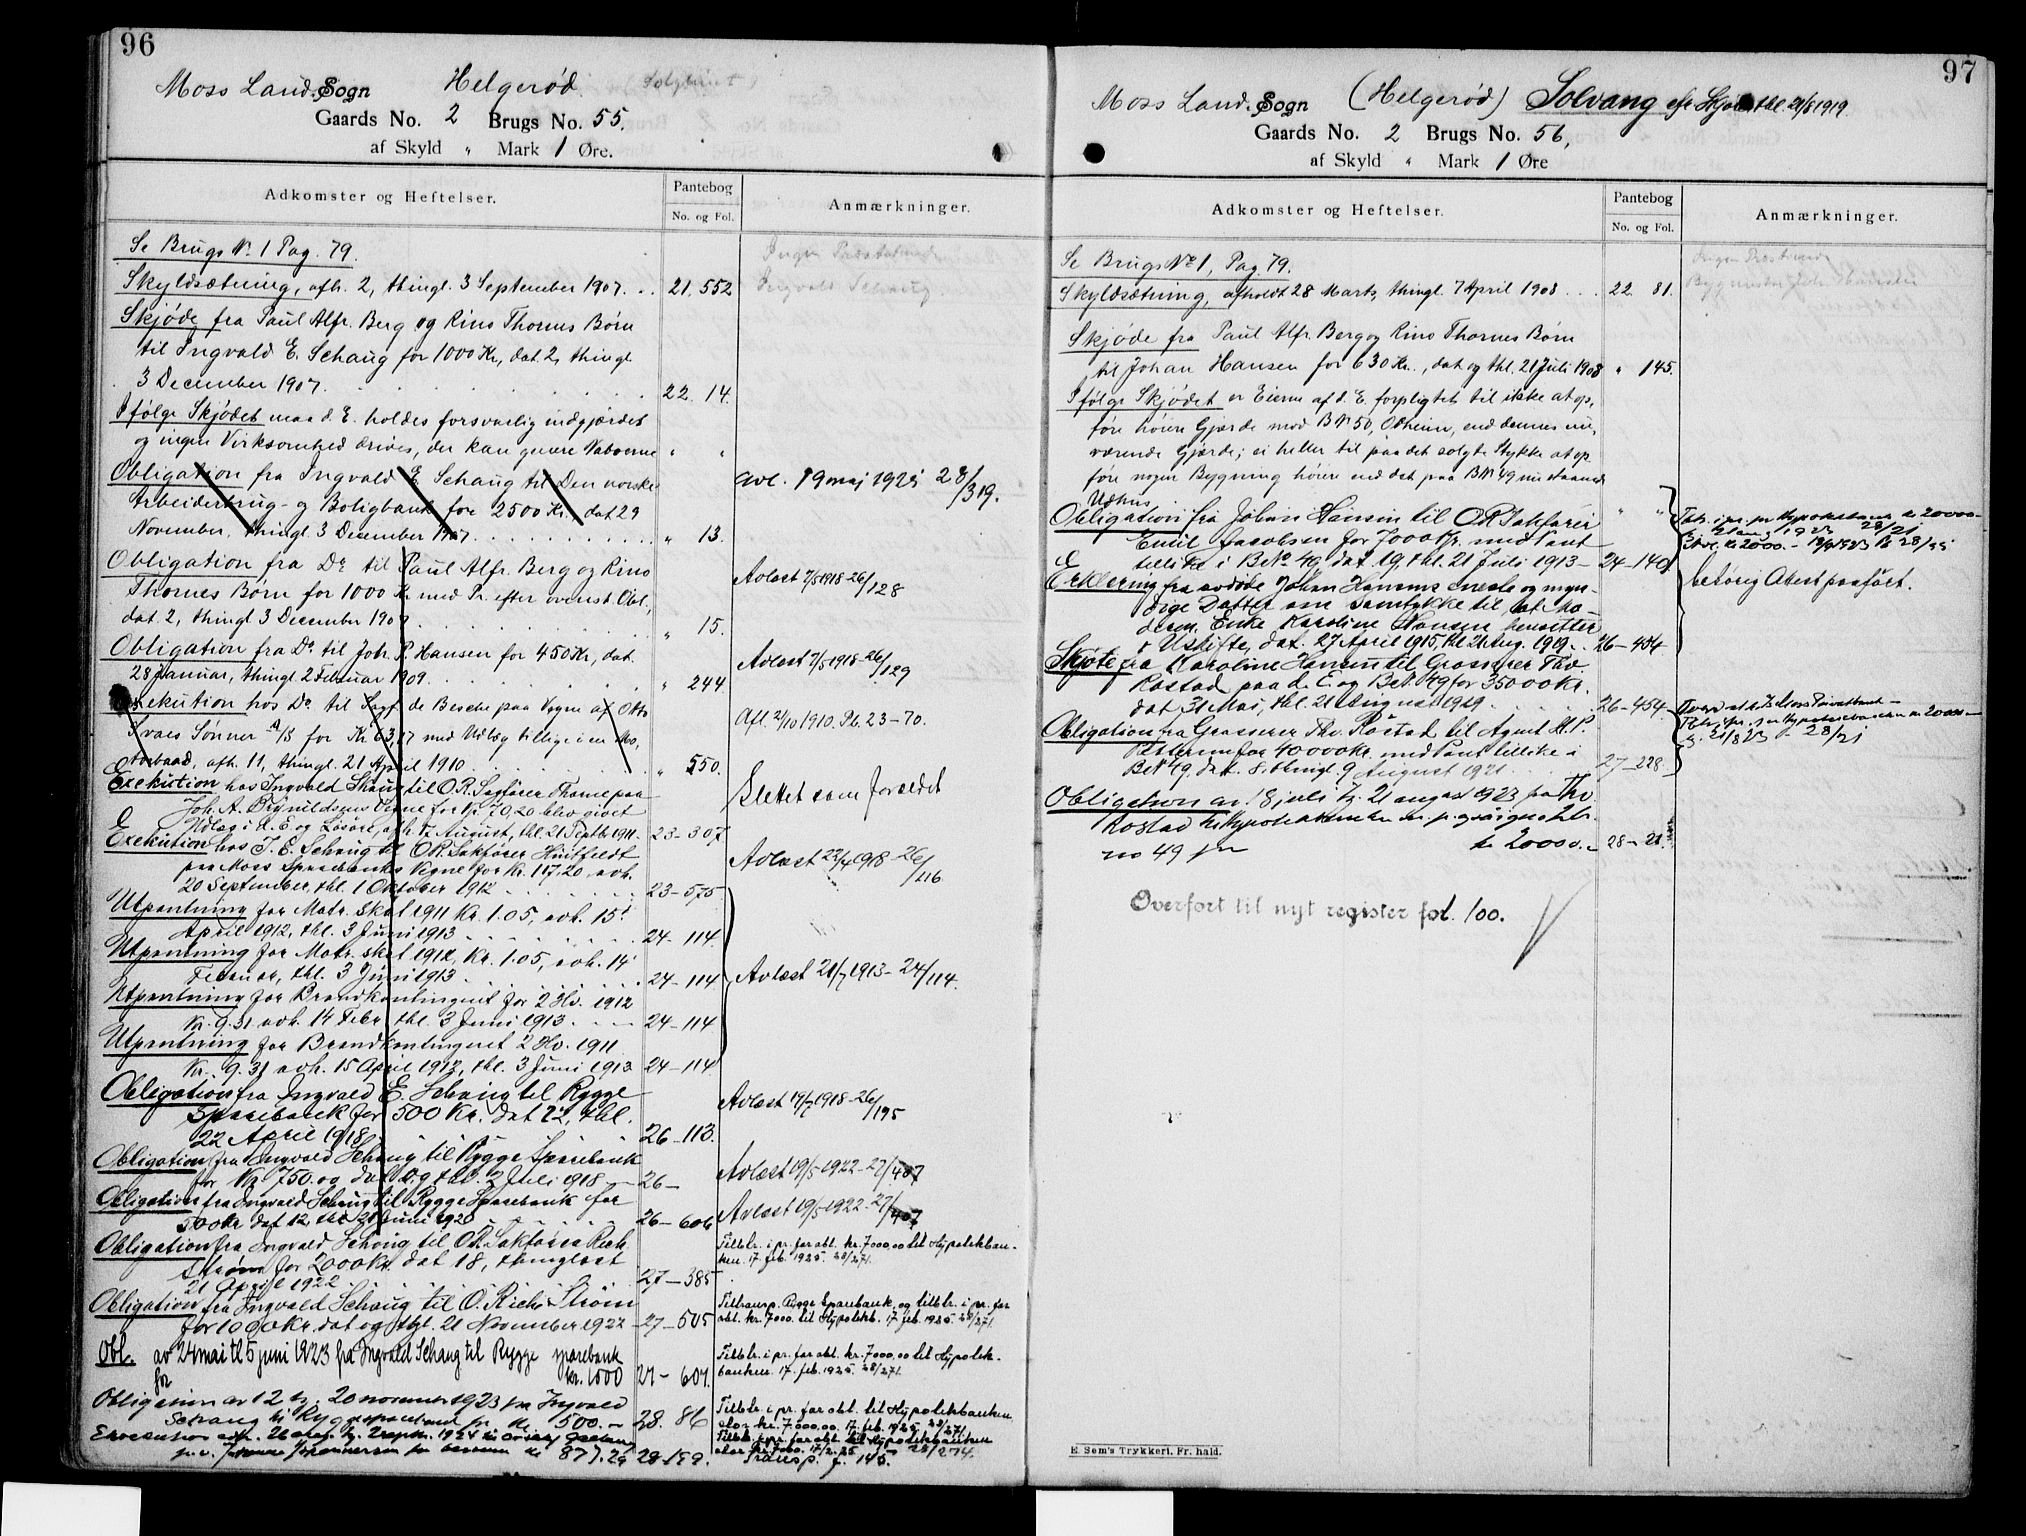 96
Moss Land. Sogn Helgerød.
Gaards No. 2 Brugs No. 55.
af Skyld " Mark 1 Øre.
Adkomster og Heftelser.
Pantebog
No. og Fol.
Anmærkninger.
Se Brugs No. 1 Pag. 79.
Skyldsætning, afh. 2, thingl. 3 September 1907. 21. 552
Skjøde fra Paul Alfr. Berg og Rino Thornes Børn
til Ingvald E. Schaug for 1000 Kr., dat. 2, thingl.
3 December 1907. 22. 14.
Ifølge Skjødet maa d. E. holdes forsvarlig indgjærdet
og ingen Virksomhed drives, der kan genere Naboerne " "
Obligation fra Ingvald E. Schaug til Den norske
Arbeiderbrug- og Boligbank for 2500 Kr., dat 29
November, thingl. 3 December 1907. " 13.
avl. 19 maj 1925 28/319.
Obligation fra Do. til Paul Alfr. Berg og Rino
Thornes Børn for 1000 Kr. med Pr. efter ovenst. Obl.,
dat. 2, thingl. 3 December 1907. " 15.
Avlæst 7/5 1918 - 26/128
Obligation fra Do. til Joh. P. Hansen for 450 Kr., dat.
28 Januar, thingl. 2 Februar 1909. " 244
Avlæst 7/5 1918 - 26/129
Exekution hos Do. til Sagf. de Besche paa Vegne af Otto
Svaes Sønner A/S for Kr 63,17 med Udlæg tillige i en Mo-
torbaad, afh. 11, thingl. 21 April 1910. " 550.
Afl. 21/10 1910. Pb. 23-70.
Exekution hos Ingvald Skaug til O.R. Sagfører Thome paa
Joh. A. Brynildsens Vegne for Kr. 70,20 blev givet
Udlæg i d. E. og Løsøre, afh. 17 August, thl. 21 Septb 1911. 23-307
Slettet som forældet
Exekution hos I. E. Schaug til O.R. Sakfører Huitfeldt
paa Moss Sparebanks Vegne for Kr. 117,20, avh.
20 September, thl. 1 Oktober 1912 23-575
Avlæst 22/4 1918 - 26/116
Utpantning for Matr. skat 1911 Kr. 1.05, avh. 15
April 1912, thl. 3 Juni 1913 24-114.
Utpantning for Matr. skat 1912, Kr. 1.05, avh. 14
Februar, thl. 3 Juni 1913 24-114
Avlæst 21/7 1913 - 24/114.
Utpantning for Brandkontingent for 2 Hv. 1912
Kr. 9.31 avh. 14 Febr., thl. 3 Juni 1913 24-114
Utpantning for Brandkontingent 2 Hv. 1911
Kr. 9.31 avh. 15 April 1912, thl. 3 Juni 1913 24-114
Obligation fra Ingvald E. Schaug til Rygge
Sparebank for 500 Kr. dat 12, thl.
22 April 1918 26-113.
Avlæst 19/7 1918 - 26/195
Obligation fra Ingvald Schaug til Rygge Sparebank
for Kr. 750.00 dat og thl. 2 Juli 1918 26-
Avlæst 19/5 1922 - 27/407
Obligation fra Ingvald Schaug til Rygge Sparebank for
500 kr dat 12, thl. 21 Juni 1920 26-606
Avlæst 19/5 1922 - 27/407
Obligation fra Ingvald Schaug til O.R. Sakfører Rich.
Strøm for 2000 Kr. dat 18, thinglæst
21 April 1922 27-385
Tilbtr. i pr. for obl. kr. 7000,00 til Hypotekban-
ken. 17. feb. 1925. 28/271.
Obligation fra Ingvald Schaug til O. Rich. Strøm
for 1000 kr. dat og thgl. 21 November 1922 27-505
Tiltransp. Rygge Sparebank, og tilbtr. i pr. for
obl. kr. 7000. til Hypotekb. 17. feb. 1925. 28/271.
Obl. av 24 mai tl 5 juni 1923 fra Ingvald Schaug til Rygge sparebank
for kr. 1000 27-607.
Tilbtr. i pr. for obl. kr. 7000,00 til Hypotek-
banken. 17. feb. 1925. 28/271.
Obligasion av 12 tg. 20 november 1923 fra Ingvald
Schaug til Rygge sparebank for kr. 500.- 28. 86
Tilbtr. i pr. for obl. til Hypotekbanken
stor kr. 7000.00. 17. feb. 1925. 28/271.
877.29 28-199.
Transp. f. 145.
97
Moss Land. Sogn (Helgerød) Solvang efr. Skjøte thl. 21/8 1919.
Gaards No. 2 Brugs No. 56,
af Skyld " Mark 1 Øre
Adkomster og Heftelser.
Pantebog
No. og Fol.
Anmærkninger.
Se Brugs No. 1, Pag. 79.
Skyldsætning, afholdt 28 Marts, thingl. 7 April 1908 22 81.
Skjøde fra Paul Alfr. Berg og Rino Thornes Børn
til Johan Hansen for 630 Kr., dat og thl. 21 Juli 1908 " 145.
Ifølge Skjødet er Eieren af d. E. forpligtet til ikke at op-
føre høiere Gjærde mod B.No. 50, Odheim, end dennes nu-
værende Gjærde; ei heller til paa det solgte Stykke at op-
føre nogen Bygning høiere end det paa B.No. 49 nu staaende
Udhus " "
Obligation fra Johan Hansen til O.R. Sakfører
Emil Jacobsen for 7000 Kr. med Pant
tillike i B.No. 49, dat. 19, thl. 21 Juli 1913 24-140
Erklæring fra avdøde Johan Hansens eneste og myn-
dige Datter om samtykke til at Mo-
deren, Enke Karoline Hansen hensitter
i Uskifte, dat. 27 April 1915, thl. 21 Aug. 1919. 26-454
behørig Atest paaført.
Skjøte fra Karoline Hansen til Grosserer Thv.
Rostad paa d. E. og B.No. 49 for 35000 Kr.
dat 31 Mai, thl. 21 August 1919 26-454
Obligation fra Grosserer Thv. Rostad til Agent H. P.
Pettersen for 40000 kr. med Pant tillike i
B.No. 49, dat. 8, thingl. 9 August 1921 27-228
Obligation av 18 juli tg. 21 august 1923 fra Thv.
Rostad til Hypotekbanken
no 49 for kr 20000.- 28-21
Overført til nyt register fol. 100.
E. Sem's Trykkeri, Fr. hald.